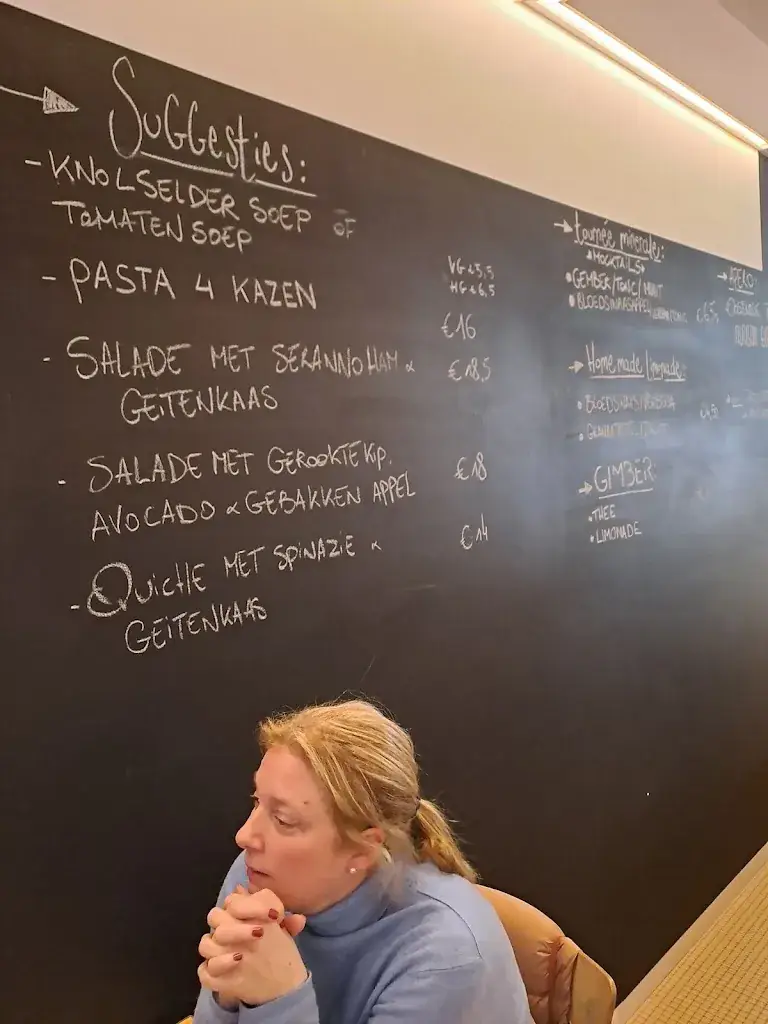 Suggesties:
- KNOLSELDER SOEP OF
TOMATEN SOEP
VG €5,5
HG €6,5
- PASTA 4 KAZEN
€16
- SALADE MET SERANNO HAM &
GEITENKAAS
€18,5
- SALADE MET GEROOKTE KIP,
AVOCADO & GEBAKKEN APPEL
€18
- QUICHE MET SPINAZIE &
GEITENKAAS
€14
→ tournée minerale:
MOCKTAILS
• GEMBER/TONIC/MUNT
• BLOEDSINAASAPPEL
→ Homemade limonade:
→ GIMBER:
• THEE
• LIMONADE
→ APERO: